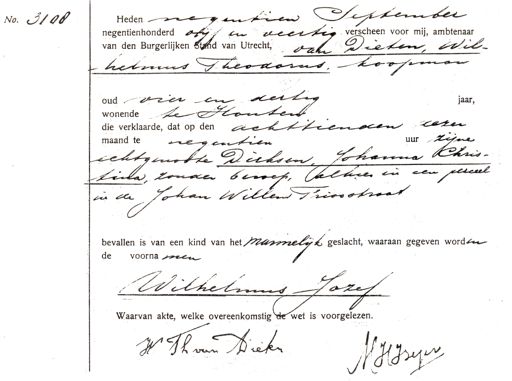 No. 3108
Heden negentien September
negentienhonderd vijf en veertig verscheen voor mij, ambtenaar
van den Burgerlijken Stand van Utrecht, van Dieten, Wil-
helmus Theodorus, koopman
oud vier en dertig jaar,
wonende te Houten
die verklaarde, dat op den achttienden dezer
maand te negentien uur zijne
echtgenoote Dirksen, Johanna Chris-
tina, zonder beroep, alhier in een perceel
in de Johan Willem Frisostraat
bevallen is van een kind van het Mannelijk geslacht, waaraan gegeven worden
de voornamen
Wilhelmus Jozef
Waarvan akte, welke overeenkomstig de wet is voorgelezen.
W Th van Dieten